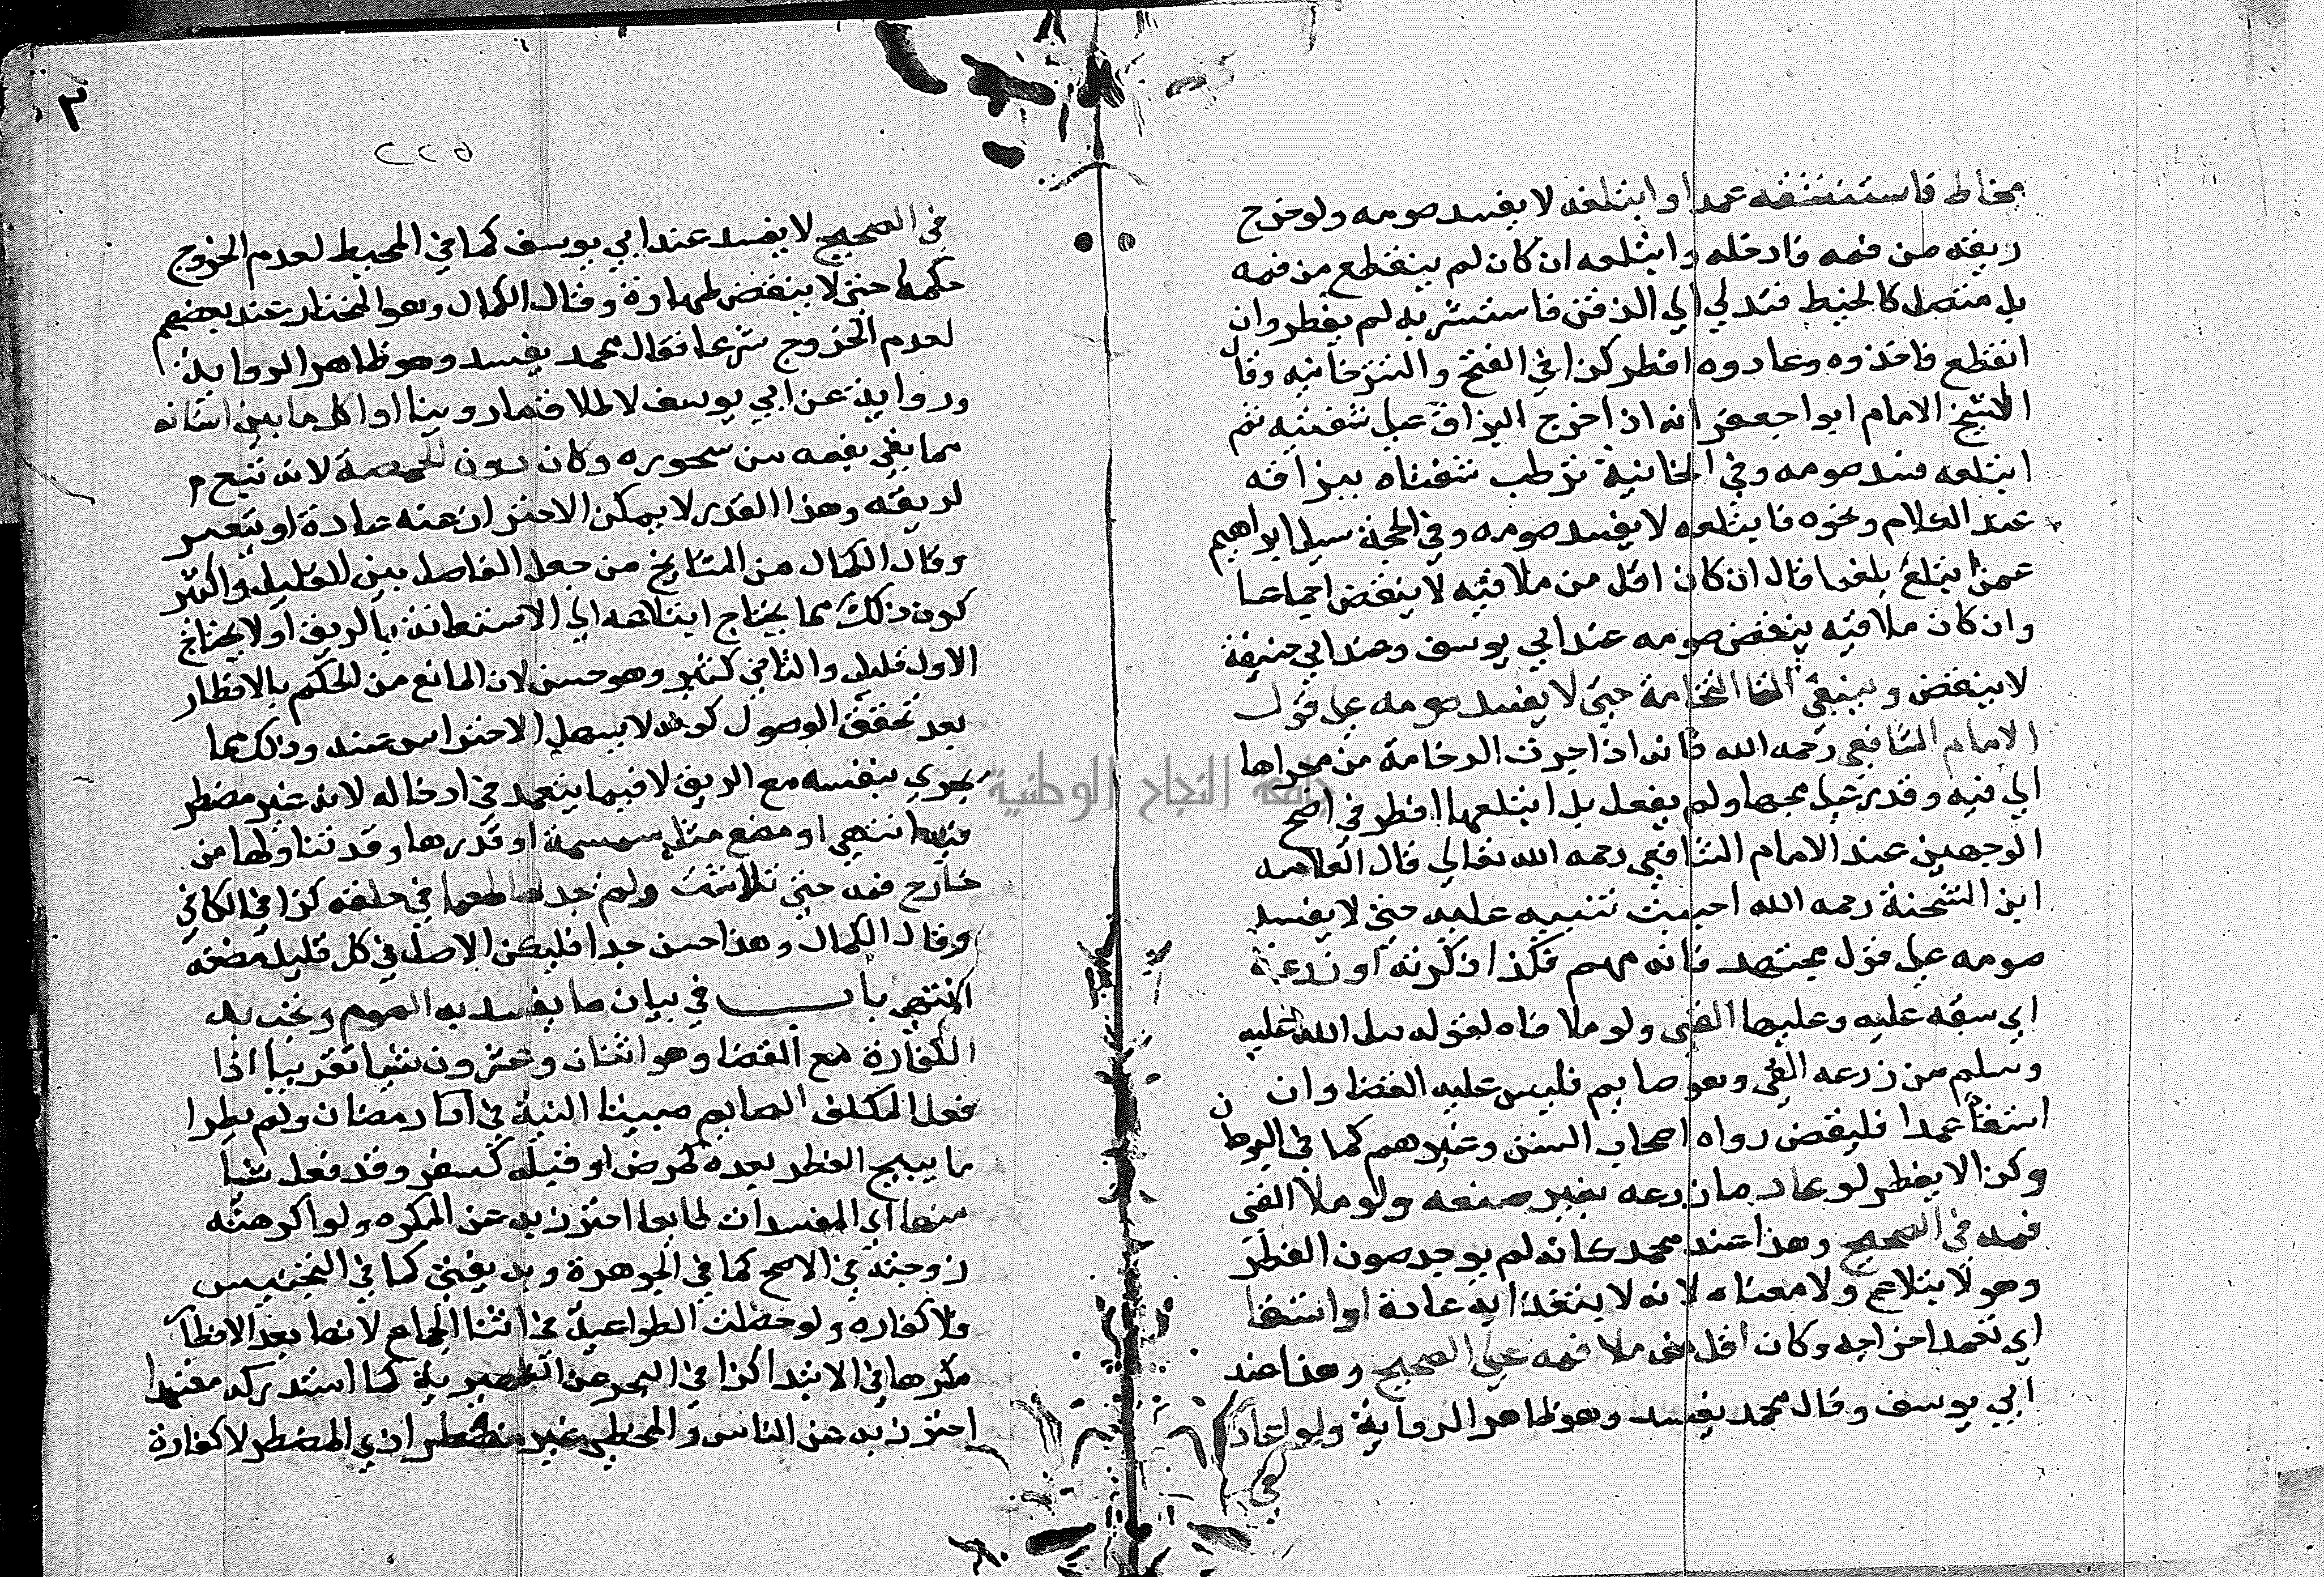 مخاط فاستنشقه عمدا وابتلعه لا يفسد صومه ولو خرج
ريقه من فمه فادخله وابتلعه ان كان لم ينقطع من فمه
بل متصل كالخيط فتدلي الي الذقن فاستشربه لم يفطر وان
انقطع فاخذه وعاده افطر كذا في الفتح والتترخانيه وقال
الشيخ الامام ابوا جعفر انه اذا خرج البزاق علي شفتيه ثم
ابتلعه فسد صومه وفي الخانية ترطب شفتاه ببزاقه
عند الكلام ونحوه فابتلعه لا يفسد صومه وفي الحجة سيل ابراهيم
عمن ابتلع بلغما قال ان كان اقل من ملا فيه لا ينقض اجماعا
وان كان ملا فيه ينقض صومه عند ابي يوسف وعند ابي حنيفة
لا ينقض وينبغي القا النخامة حتي لا يفسد صومه علي قول
الامام الشافعي رحمه الله فانه اذا جرت النخامة من مجراها
الي فيه وقدر علي مجها ولم يفعل بل ابتلعها افطر في اصح
الوجهين عند الامام الشافعي رحمه الله تعالي قال العلامه
ابن الشحنة رحمه الله احببت تنبيه عليه حتي لا يفسد
صومه علي قول مجتهد فانه مهم فلذا ذكرته او ذرعه
اي سبقه عليه وغلبها القي ولو ملا فاه لقوله صلي الله عليه
وسلم من ذرعه القي وهو صايم فليس عليه القضا وان
استقا عمدا فليقض رواه اصحاب السنن وغيرهم كما في البرهان
وكذا لا يفطر لو عاد ما ذرعه بغير صنعه ولو ملا القي
فمه في الصحيح وهذا عند محمد كانه لم يوجد صون الفطر
وهو لا بتلاع ولا معناه لانه لا يتغذا به عادة او استقا
اي تعمد اخراجه وكان اقل من ملا فمه علي الصحيح وهذا عند
ابي يوسف وقال محمد يفسد وهو ظاهر الرواية ولو اعاد
في
٣
٢٢٥
في الصحيح لا يفسد عند ابي يوسف كما في المحيط لعدم الخروج
حكما حتي لا ينقض طهارة وقال الكمال وهو المختار عند بعضهم
لعدم الخروج شرعا فقال محمد يفسد وهو ظاهر الرواية
ورواية عن ابي يوسف لاطلاق ما روينا او اكل ما بين اسنانه
مما بقي بفمه من سحوره وكان دون الحمصة لانه تبع م
لريقه وهذا القدر لا يمكن الاحتراز عنه عادة او بتعسر
وقال الكمال من المشايخ من جعل الفاصل بين القليل والكثير
كون ذلك مما يحتاج ابتلاعه الي الاستعانة بالريق او لا يحتاج
الاول قليل والثاني كثير وهو حسن لان المانع من الحكم بالافطار
بعد تحقق الوصول كونه لا يسهل الاحتراس عنه وذلك بما
يجري بنفسه مع الريق لا فيما يتعمد في ادخاله لانه غير مضطر
فيه انتهي او مضغ مثل سمسمة او قدرها وقد تناولها من
خارج فمه حتي تلاشت ولم يجد لها طعما في حلقه كذا في الكافي
وقال الكمال وهذا حسن جدا فليكن الاصل في كل قليل مضغه
انتهي باب في بيان ما يفسد به الصوم وتجب به
الكفارة مع القضا وهو اثنان وعشرون شيا تقريبا اذا
فعل المكلف الصايم مبيتا النية في ادا رمضان ولم يطرا
ما يبيح الفطر بعده كمرض او قبله كسفر وقد فعل شيا
منها اي المفسدات طايعا احترز به عن المكره ولو اكرهته
زوجته في الاصح كما في الجوهرة وبه يفتي كما في التجنيس
ولا كفاره ولو حصلت الطواعية في اثنا الجماع لانها بعد الافطار
مكرها في الابتدا كذا في البحر عن الظهيرية كما استدركه متعمدا
احترز به عن الناس والمخطي غير مضطر اذ المضطر لا كفارة